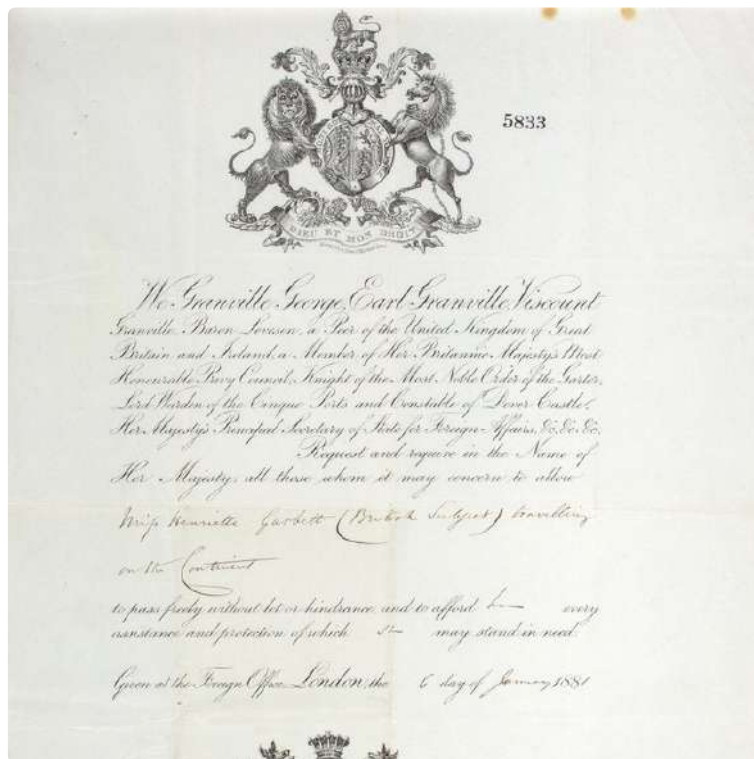 5833
DIEU ET MON DROIT
We Granville George, Earl Granville, Viscount
Granville, Baron Leveson, a Peer of the United Kingdom of Great
Britain and Ireland, a Member of Her Britannic Majesty's Most
Honourable Privy Council, Knight of the Most Noble Order of the Garter,
Lord Warden of the Cinque Ports and Constable of Dover Castle,
Her Majesty's Principal Secretary of State for Foreign Affairs, &c. &c. &c.
Request and require in the Name of
Her Majesty, all those whom it may concern to allow
Miss Henrietta Garbett (British Subject) travelling
on the Continent
to pass freely without let or hindrance and to afford her every
assistance and protection of which she may stand in need.
Given at the Foreign Office, London, the 6 day of January 1881